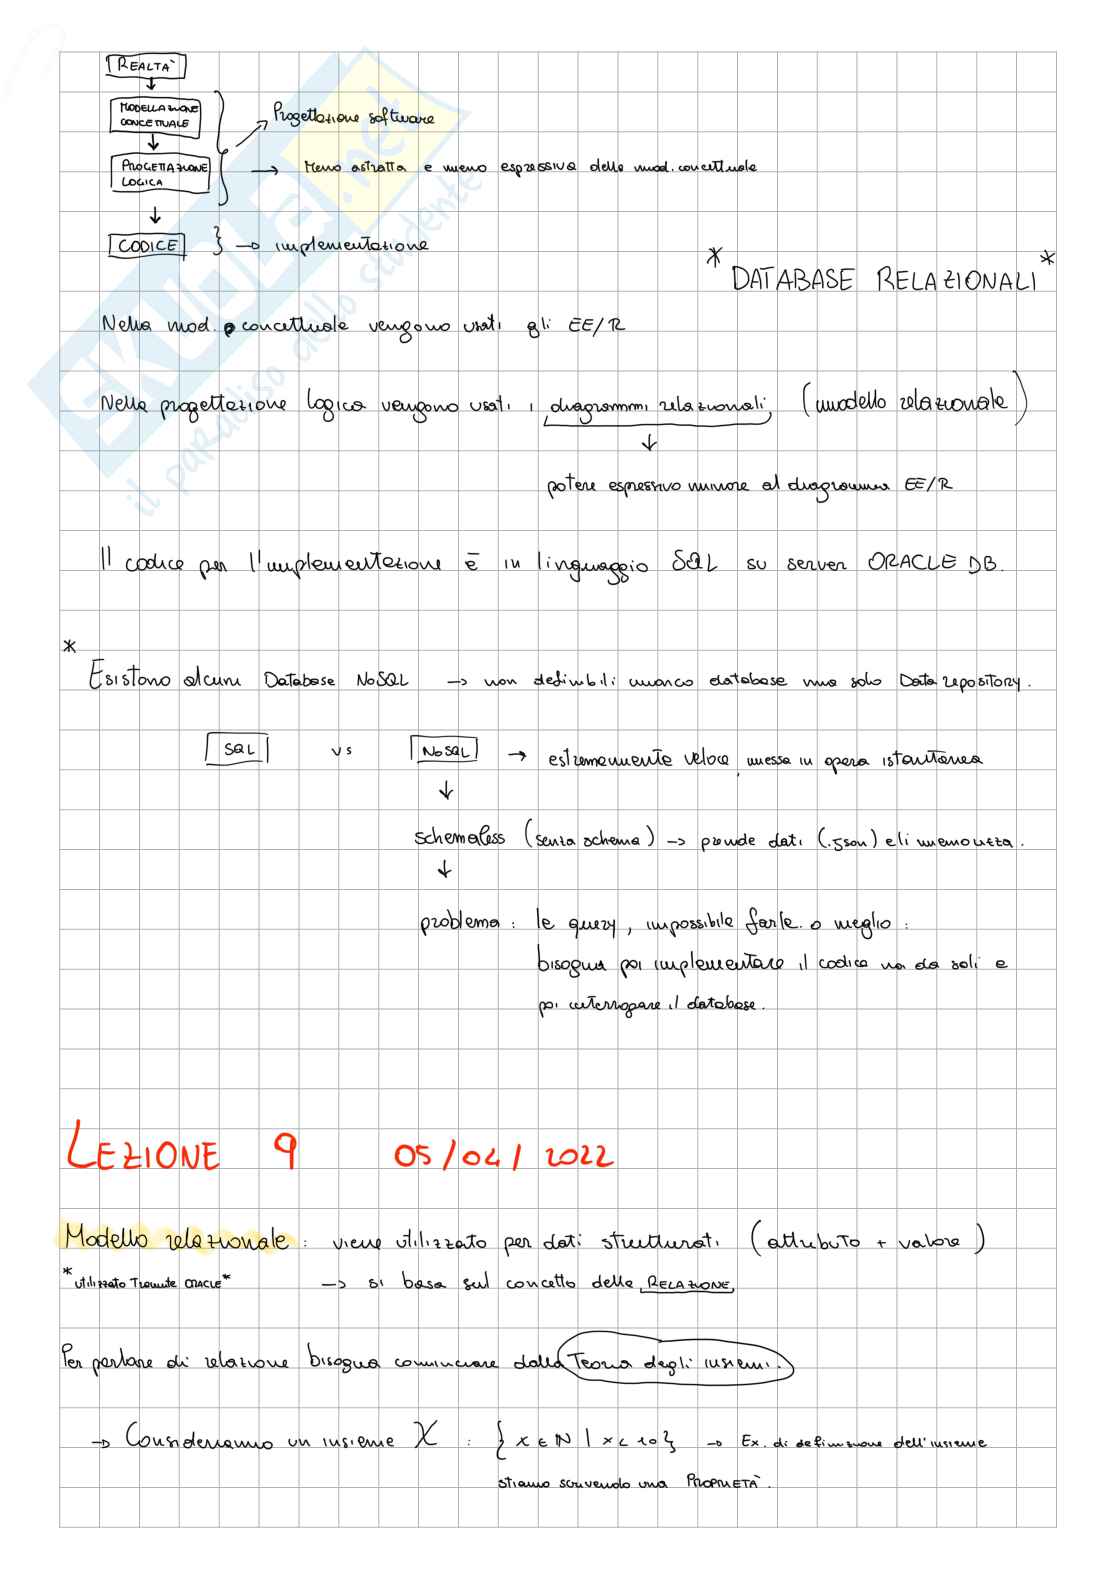 REALTÀ
MODELLAZIONE
CONCETTUALE
Progettazione software
PROGETTAZIONE
LOGICA
→ Meno astratta e meno espressiva della mod. concettuale
CODICE } → implementazione
* DATABASE RELAZIONALI *
Nella mod. concettuale vengono usati gli EE/R
Nella progettazione logica vengono usati i diagrammi relazionali (modello relazionale)
potere espressivo minore al diagramma EE/R
Il codice per l'implementazione è in linguaggio SQL su server ORACLE DB.
*
Esistono alcuni Database NoSQL → non definibili manco database ma solo Data repository.
SQL vs NoSQL → estremamente veloce, messa in opera istantanea
schemaless (senza schema) → prende dati (.json) e li memorizza.
problema: le query, impossibile farle. o meglio:
bisogna poi implementare il codice noi da soli e
poi interrogare il database.
LEZIONE 9 05/04/2022
Modello relazionale: viene utilizzato per dati strutturati (attributo + valore)
* utilizzato Tramite ORACLE * → si basa sul concetto della RELAZIONE
Per parlare di relazione bisogna cominciare dalla Teoria degli insiemi.
→ Consideriamo un insieme X : {x ∈ ℕ | x < 10} → Ex. di definizione dell'insieme
stiamo scrivendo una PROPRIETÀ.
SKUOLA.net
il paradiso dello studente